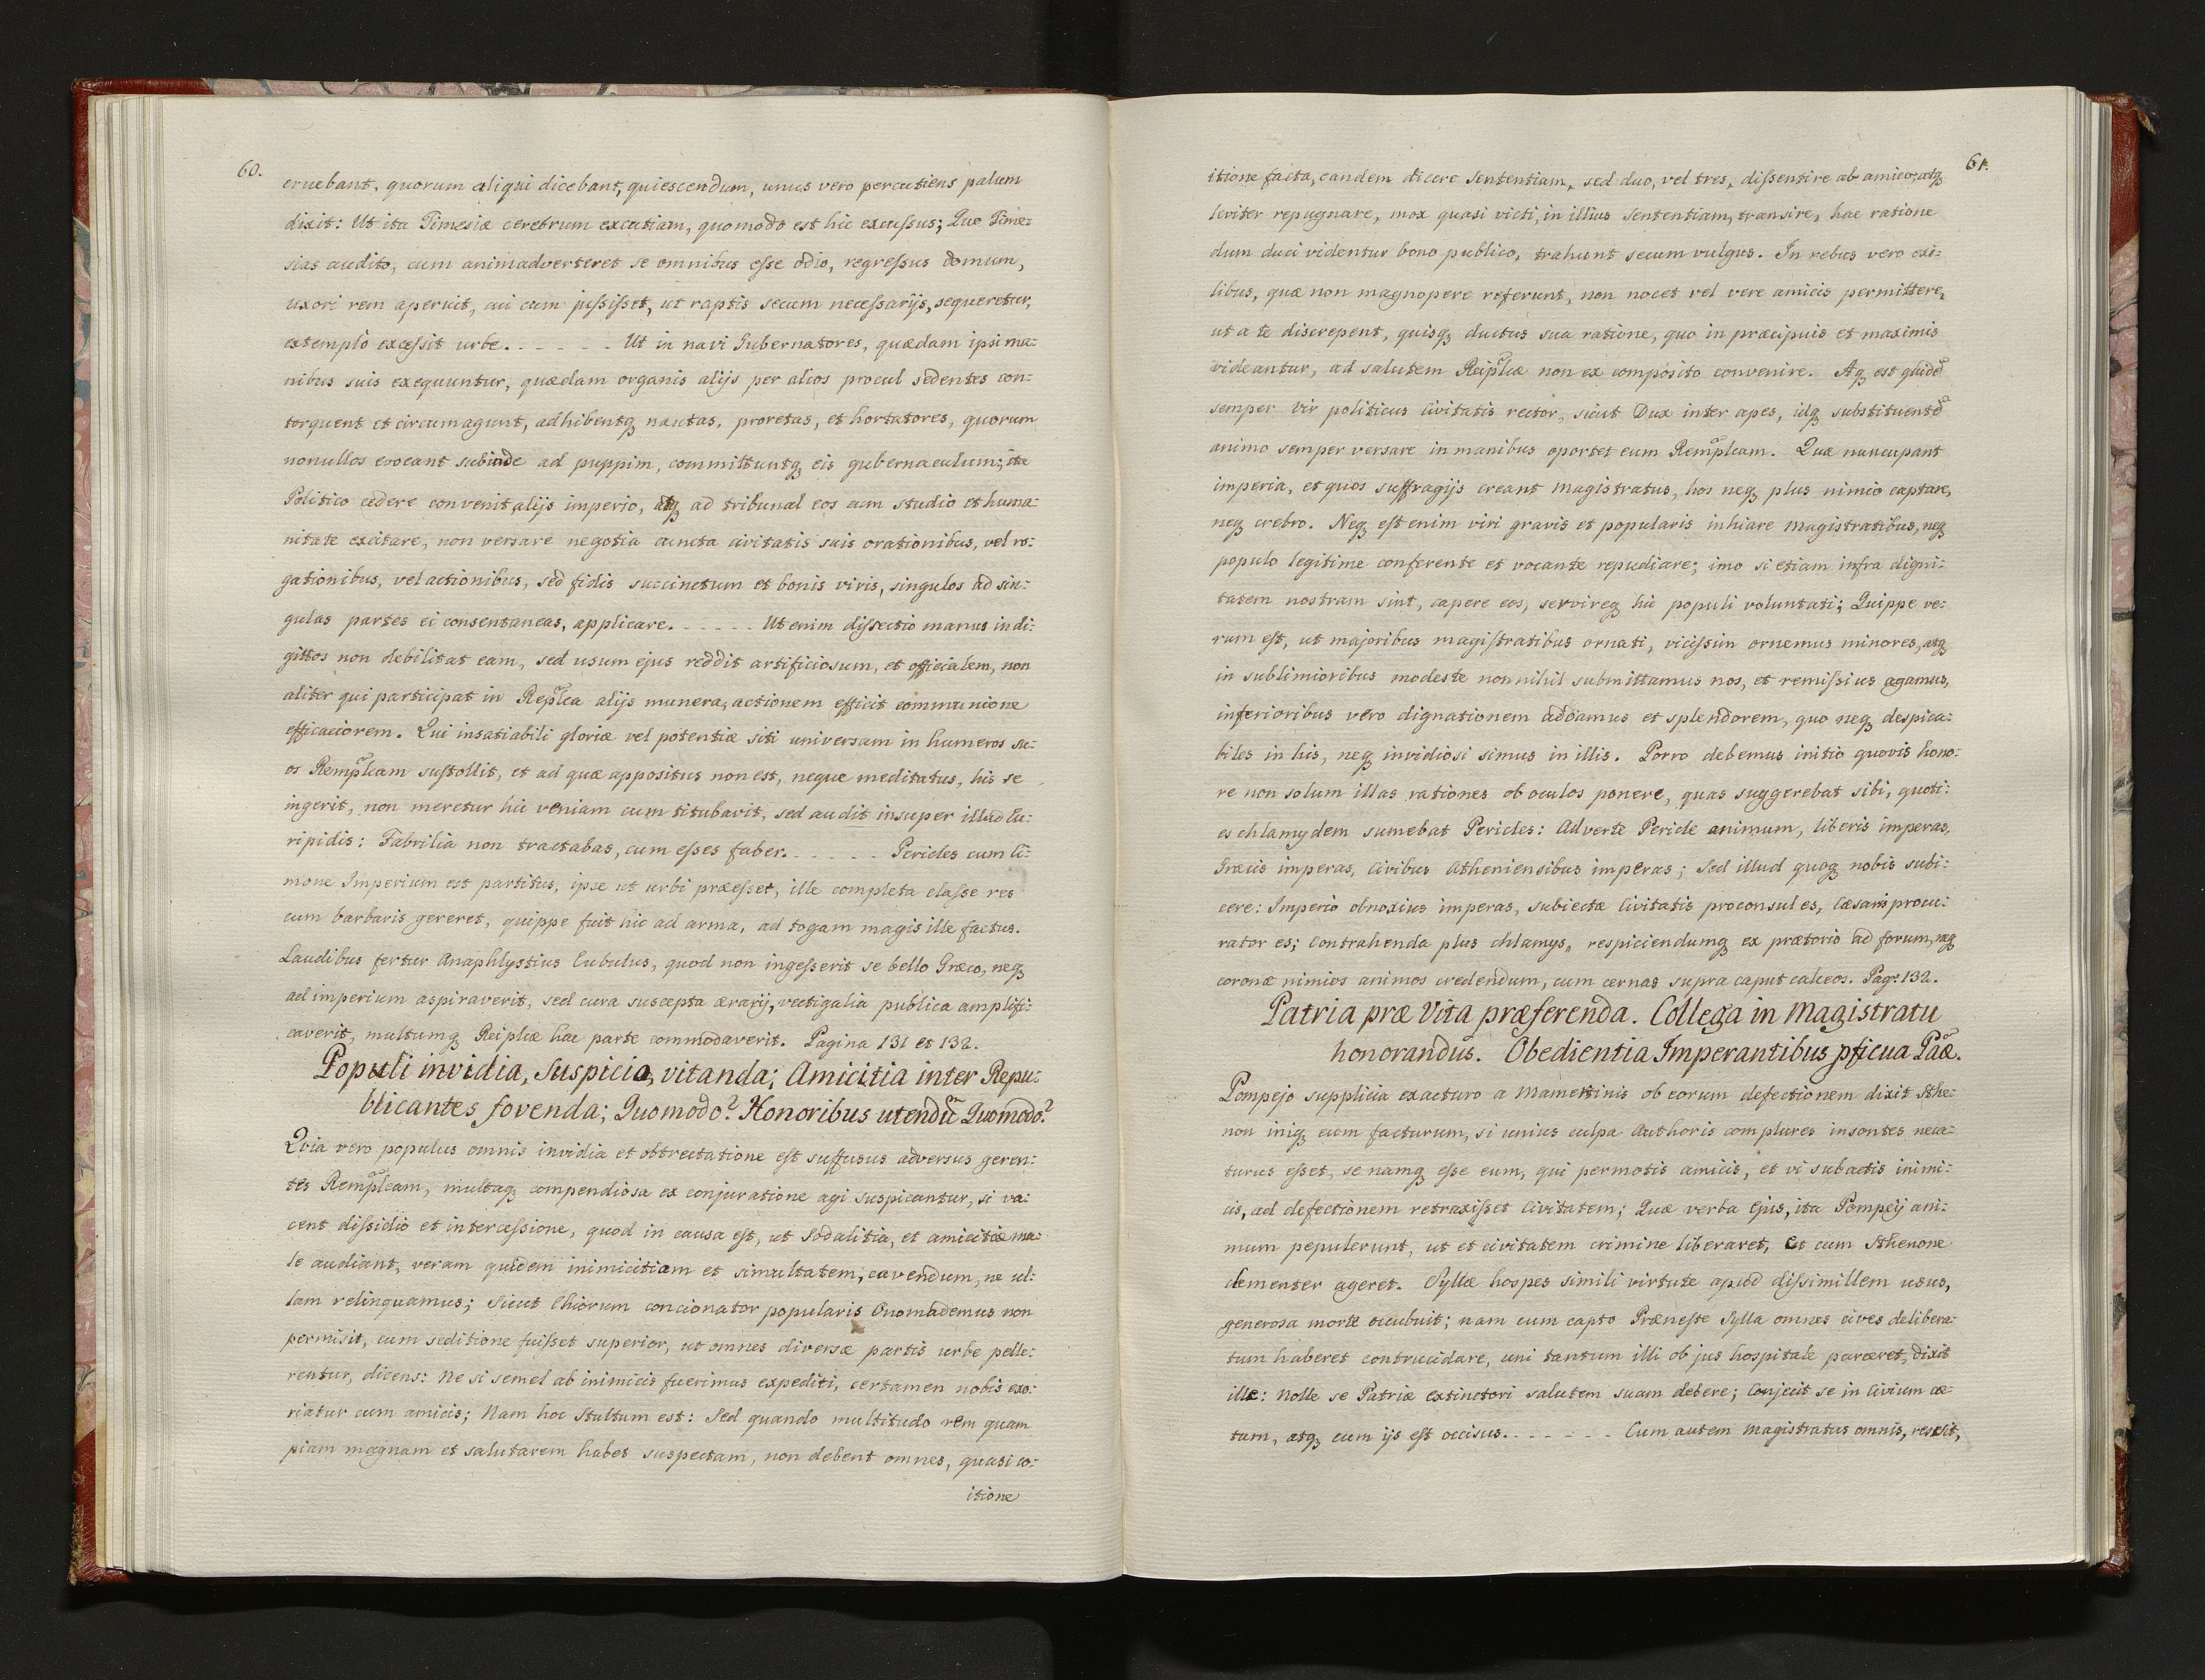 60.
eruebant, quorum aliqui dicebant, quiescendum, unus vero percutiens palum
dixit: Ut ita Timesiæ cerebrum excutiam, quomodo est hic excussus; Quo Time:
sias audito, cum animadverteret se omnibus esse odio, regressus domum,
uxori rem aperuit, cui cum jussisset, ut raptis secum necessarijs, sequeretur,
extemplò excessit urbe. - - - - - Ut in navi Gubernatores, quædam ipsi ma:
nibus suis exequuntur, quædam organis alijs per alios procul sedentes con:
torquent et circumagunt, adhibentq; nautas, proretas, et hortatores, quorum
nonullos evocant subinde ad puppim, committuntq; eis gubernaculum; ita
Politico cedere convenit alijs imperio, atq; ad tribunal eos cum studio et huma:
nitate excitare, non versare negotia cuncta civitatis suis orationibus, vel ro:
gationibus, vel actionibus, sed fidis succinctum et bonis viris, singulos ad sin:
gulas partes ei consentaneas, applicare. - - - - - Ut enim dissectio manus in di:
gittos non debilitat eam, sed usum ejus reddit artificiosum, et officialem, non
aliter qui participat in Replca alijs munera, actionem efficit communione
efficaciorem. Qui insatiabili gloriæ vel potentiæ siti universam in humeros su:
os Remplcam sustollit, et ad quæ appositus non est, neque meditatus, his se
ingerit, non meretur hic veniam cum titubavit, sed audit insuper illud Eu:
ripidis: Fabrilia non tractabas, cum esses faber. - - - - - Pericles cum Ci:
mone Imperium est partitus, ipse ut urbi præesset, ille completa classe res
cum barbaris gereret, quippe fuit hic ad arma, ad togam magis ille factus.
Laudibus fertur Anaphlystius Eubulus, quod non ingesserit se bello Græco, neq;
ad imperium aspiraverit, sed cura suscepta ærarij, vectigalia publica amplifi:
caverit, multumq; Reiplcæ hac parte commodaverit. Pagina 131 et 132.
Populi invidia, Suspicio, vitanda; Amicitia inter Repu:
blicantes fovenda; Quomodo? Honoribus utendū Quomodo?
Quia vero populus omnis invidia et obtrectatione est suffusus adversus geren:
tes Remplcam, multaq; compendiosa ex conjuratione agi suspicantur, si va:
cent dissidio et intercessione, quod in causa est, ut Sodalitia, et amicitiæ ma:
le audiant, veram quidem inimicitiam et simultatem, cavendum, ne ul:
lam relinquamus; Sicut Chiorum concionator popularis Onomademus non
permisit, cum seditione fuisset superior, ut omnes diversæ partis urbe pelle:
rentur, dicens: Ne si semel ab inimicis fuerimus expediti, certamen nobis exo:
riatur cum amicis; Nam hoc Stultum est: Sed quando multitudo rem quam
piam magnam et salutarem habet suspectam, non debent omnes, quasi co:
itione
61.
itione facta, eandem dicere Sententiam, sed duo, vel tres, dissentire ab amico, atq;
leviter repugnare, mox quasi victi, in illius Sententiam, transire, hac ratione
dum duci videntur bono publico, trahunt secum vulgus. In rebus vero exi:
libus, quæ non magnopere referunt, non nocet vel vere amicis permittere,
ut a te discrepent, quisq; ductus sua ratione, quo in præcipuis et maximis
videantur, ad salutem Reiplcæ non ex composito convenire. Aq; est quidē
semper Vir politicus Civitatis rector, sicut Dux inter apes, idq; substituentē
animo semper versare in manibus oportet eum Remplcam. Quæ nuncupant
imperia, et quos suffragijs creant Magistratus, hos neq; plus nimio captare,
neq; crebro. Neq; est enim viri gravis et popularis inhiare Magistratibus, neq;
populo legitime conferente et vocante repudiare; imo si etiam infra digni:
tatem nostram sint, capere eos, servireq; hic populi voluntati; Quippe ve:
rum est, ut majoribus magistratibus ornati, vicissim ornemus minores, atq;
in sublimioribus modeste nonnihil submittamus nos, et remissius agamus,
inferioribus vero dignationem addamus et splendorem, quo neq; despica:
biles in his, neq; invidiosi simus in illis. Porro debemus initio quovis hono:
re non solum illas rationes ob oculos ponere, quas suggerebat sibi, quoti:
es chlamydem sumebat Pericles: Adverte Pericle animum, liberis imperas,
Græcis imperas, Civibus Atheniensibus imperas; Sed illud quoq; nobis subi:
cere: Imperio obnoxius imperas, subiectæ Civitatis proconsul es, Cæsaris procu:
rator es; Contrahenda plus chlamys, respiciendumq; ex prætorio ad forum, neq;
coronæ nimios animos credendum, cum cernas supra caput calceos. Pag: 132.
Patria præ Vita præferenda. Collega in Magistratu
honorandus. Obedientia Imperantibus pficua Pãæ.
Pompejo supplicia exacturo a Mamertinis ob eorum defectionem dixit Sthe:
non iniq; eum facturum, si unius culpa Authoris complures insontes neca:
turus esset, se namq; esse eum, qui permotis amicis, et vi subactis inimi:
cis, ad defectionem retraxisset Civitatem; Quæ verba Ejus, ita Pompeij ani:
mum pepulerunt, ut et civitatem crimine liberaret, et cum Sthenone
clementer ageret. Syllæ hospes simili virtute apud dissimillem usus,
generosa morte occubuit; nam cum capto Præneste Sylla omnes cives delibera:
tum haberet contrucidare, uni tantum illi ob jus hospitale parceret, dixit
ille: Nolle se Patriæ extinctori salutem suam debere; Conjecit se in Civium cœ:
tum, atq; cum ijs est occisus. - - - - - - Cum autem Magistratus omnis,